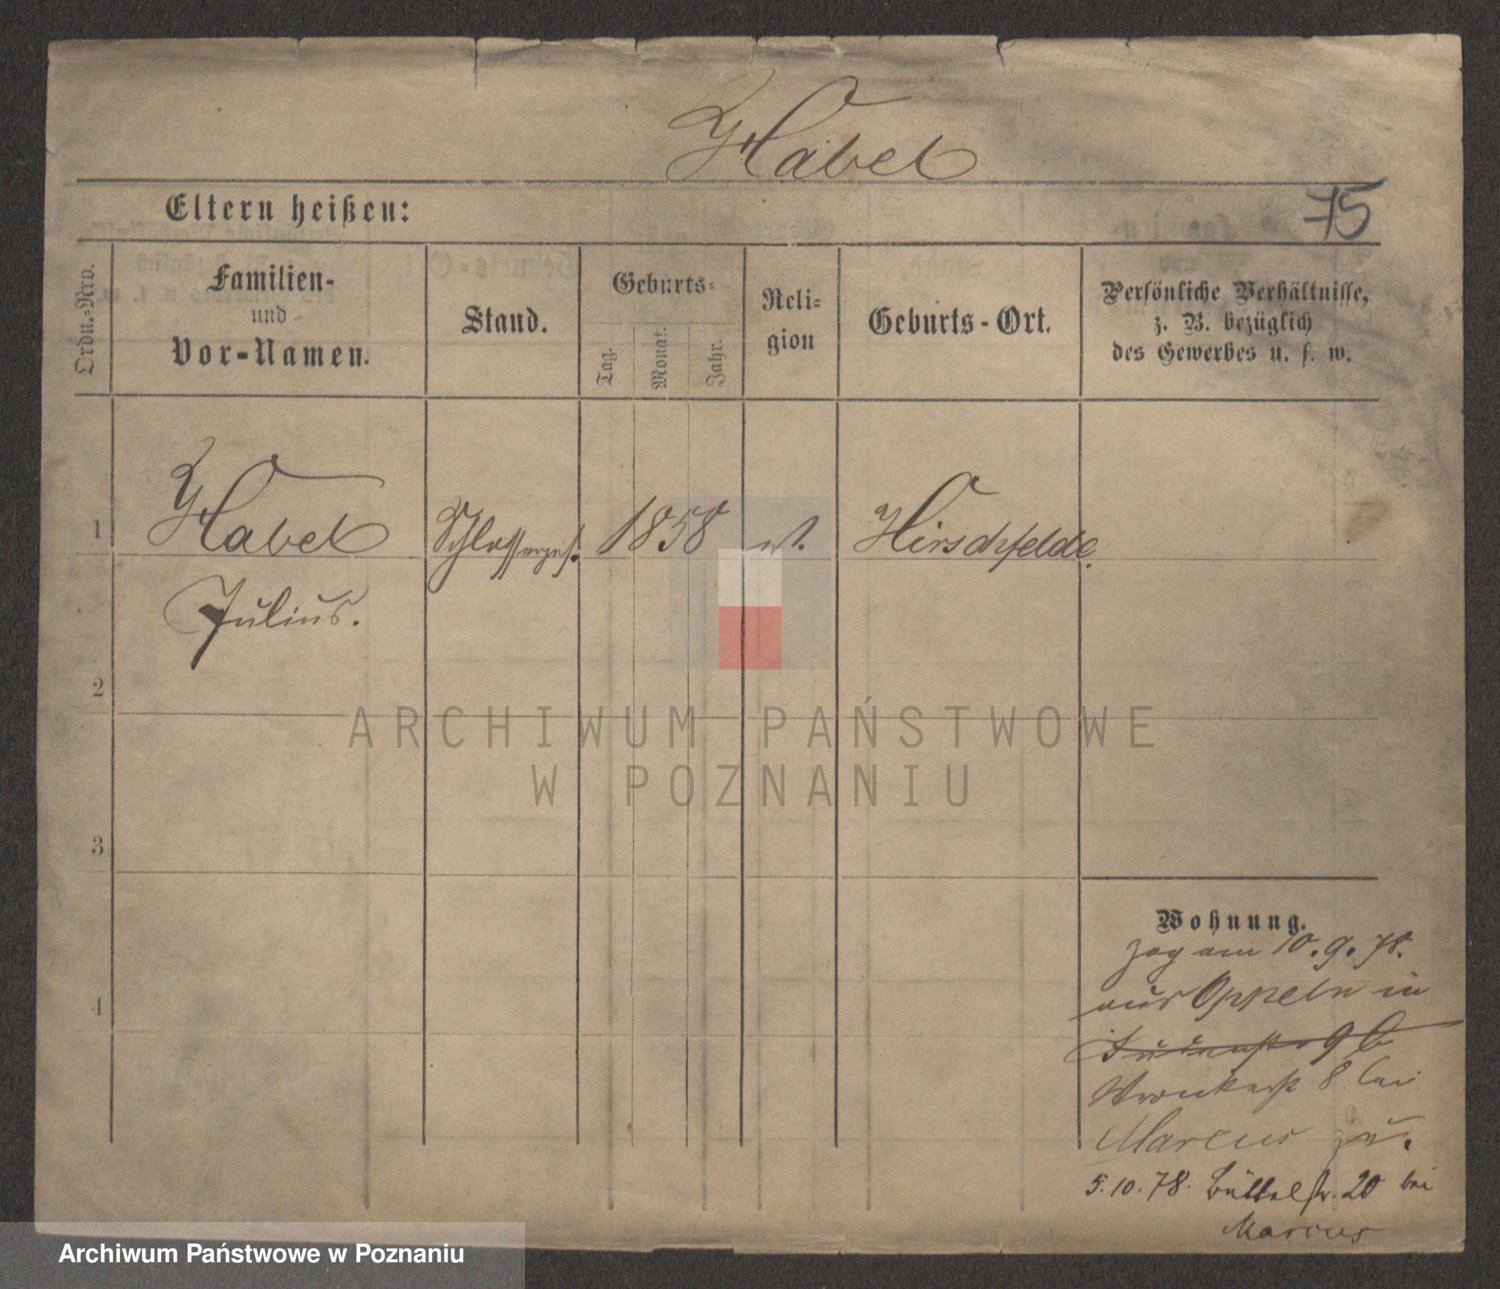 Habel
Eltern heißen:
75
Ordn.-Nro.
Familien-
und
Vor-Namen.
Stand.
Geburts-
Tag.
Monat.
Jahr.
Reli-
gion
Geburts-Ort.
Persönliche Verhältnisse,
z. B. bezüglich
des Gewerbes u. s. w.
1
Habel
Julius.
Schlosserges.
1858
Hirschfelde.
2
3
4
Wohnung.
zog am 10.9.78.
aus Oppeln in
9b
Wronkerst 8 bei
Marcus zu.
5.10.78. Büttelstr. 20 bei
Marcus
ARCHIWUM PAŃSTWOWE
W POZNANIU
Archiwum Państwowe w Poznaniu